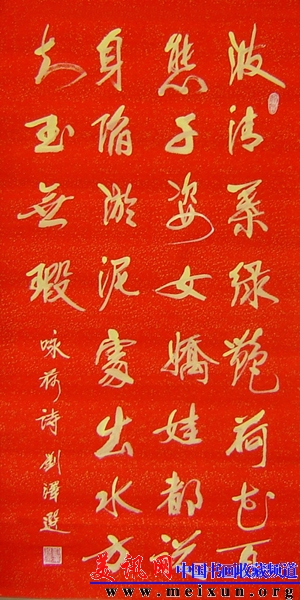 波清葉绿艷荷花百
態千姿女嬌娃都说
身陷淤泥處出水方
知玉無瑕
咏荷詩 劉澤
美讯网
中国书画收藏频道
www.meixun.org